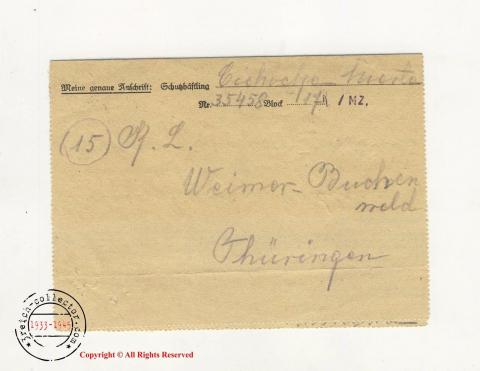 Meine genaue Anschrift: Schutzhäftling
Nr. 35458 Block 17A / MZ.
(15) K. L.
Weimar-Buchen
wald
Thüringen
3reich-collector.com
1933-1945
Copyright © All Rights Reserved